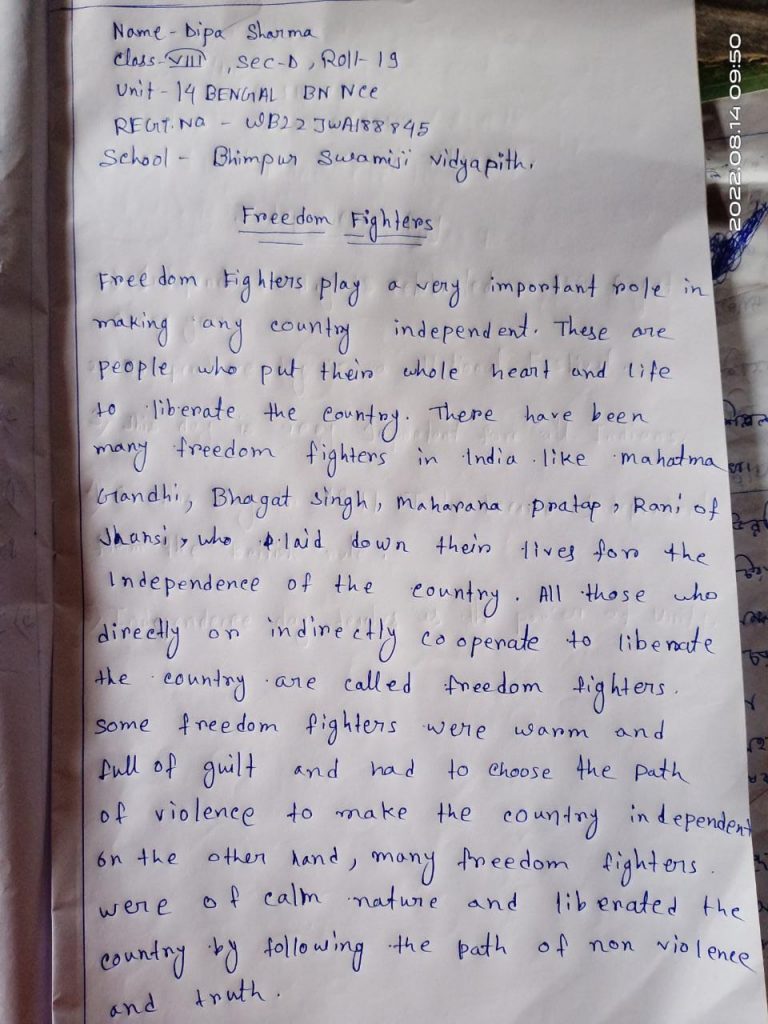 Name - Dipa Sharma
Class - VIII, Sec-D, Roll- 19
Unit - 14 BENGAL BN NCC
REGT. NO - WB22JWA188845
School - Bhimpur Swamiji Vidyapith.
Freedom Fighters
Freedom Fighters play a very important role in
making any country independent. These are
people who put their whole heart and life
to liberate the country. There have been
many freedom fighters in India like mahatma
Gandhi, Bhagat Singh, Maharana pratap, Rani of
Jhansi, who laid down their lives for the
Independence of the country. All those who
directly or indirectly cooperate to liberate
the country are called freedom fighters.
Some freedom fighters were warm and
full of guilt and had to choose the path
of violence to make the country independent
on the other hand, many freedom fighters.
were of calm nature and liberated the
country by following the path of non violence
and truth.
2022.08.14 09:50